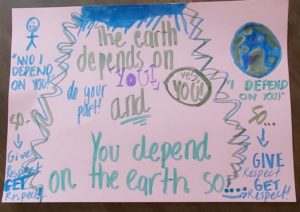 The earth
depends on
YOU!,
yes,
YOU!
do your
part!
and
You depend
on the earth so!...
"AND I
DEPEND
ON YOU!"
so
Give
Respect
GET
Respect
"I DEPEND
ON YOU!"
SO...
GIVE
Respect
GET
Respect!